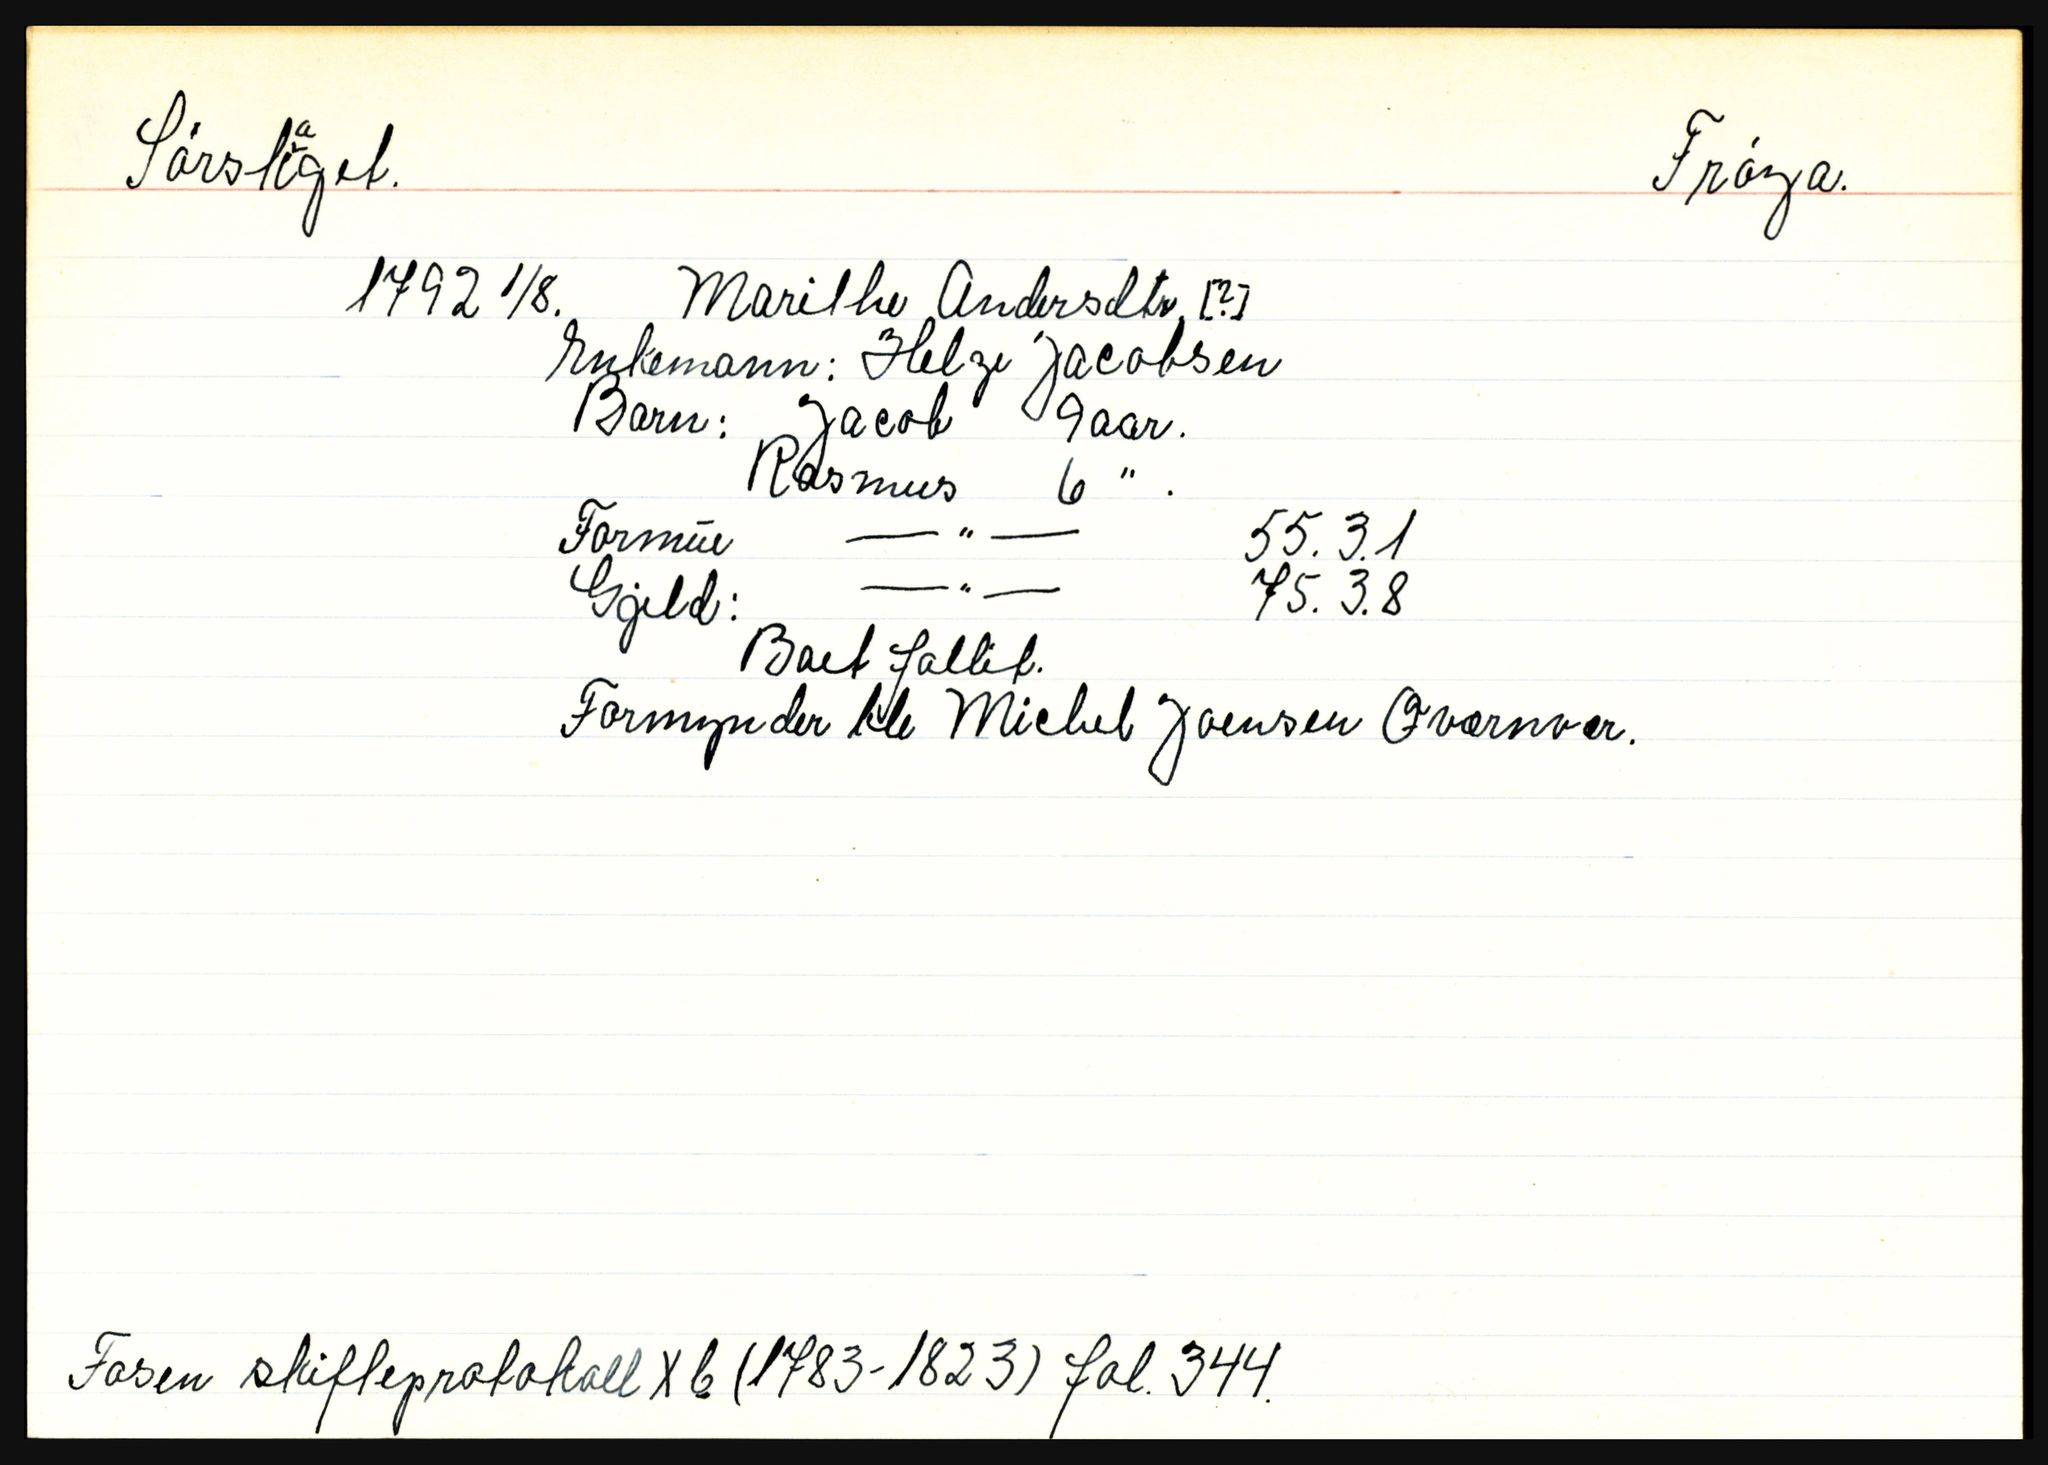 Sörslåget. Fröya.
1792 1/8. Marithe Andersdtr. [?]
Enkemann: Helge Jacobsen
Barn: Jacob 9 aar.
Rasmus 6 " .
Formüe — " — 55. 3. 1
Gjeld: — " — 75. 3. 8
Boet fallit.
Formynder ble Michel Joensen Qvernvær.
Fosen skifteprotokoll X b (1783-1823) fol. 344.